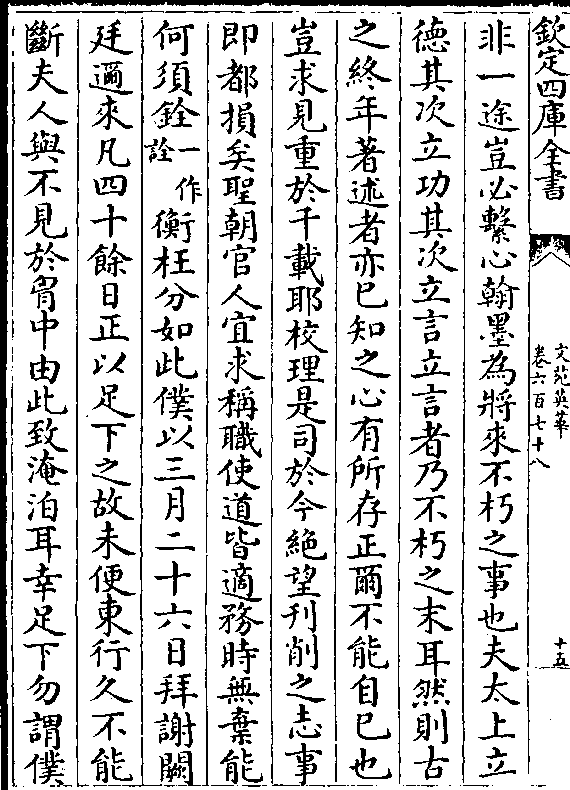 欽定四庫全書
文苑英華
卷六百七十八
十五
非一途豈必繫心翰墨為將來不朽之事也夫太上立
德其次立功其次立言立言者乃不朽之末耳然則古
之終年著述者亦已知之心有所存正爾不能自已也
豈求見重於千載耶校理是司於今絶望刋削之志事
即都損矣聖朝官人宜求稱職使道皆適務時無棄能
何須銓一作詮衡枉分如此僕以三月二十六日拜謝闕
廷邇來凡四十餘日正以足下之故未便東行久不能
斷夫人與不見於胷中由此致淹泊耳幸足下勿謂僕